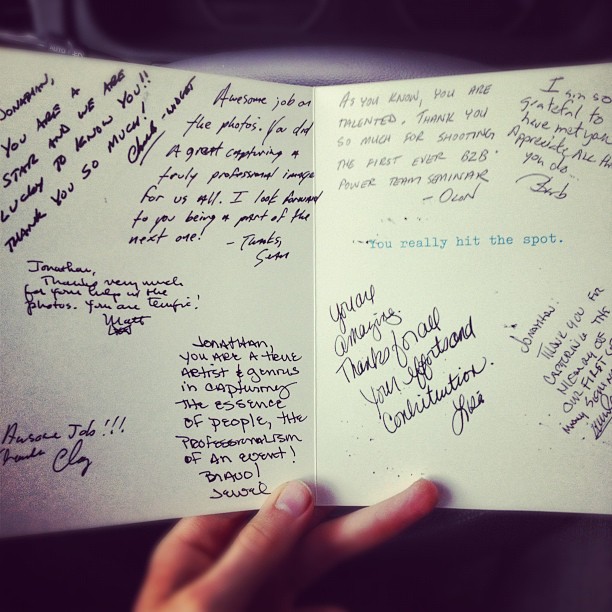 Jonathan,
You are a
star and we are
lucky to know you!!
Thank you so much!
Awesome job on
the photos. You did
a great capturing a
truly professional image
for us all. I look forward
to you being a part of the
next one!
- Thanks,
Sean
Jonathan,
Thanks very much
for your help w the
photos. You are terrific!
Matt
Jonathan,
you are a true
artist & genius
in capturing
the essence
of people, the
professionalism
of an event!
Bravo!
Jewel
Awesome Job!!!
Thanks Clay
As you know, you are
talented. Thank you
so much for shooting
the first ever B2B
Power Team Seminar
I am so
grateful to
have met you
Appreciate all th
you do...
Barb
You really hit the spot.
You are
amazing.
Thanks for all
your efforts and
Contribution.
Lisa
Jonathan:
Thank you for
capturing the
memory of
our first of
many